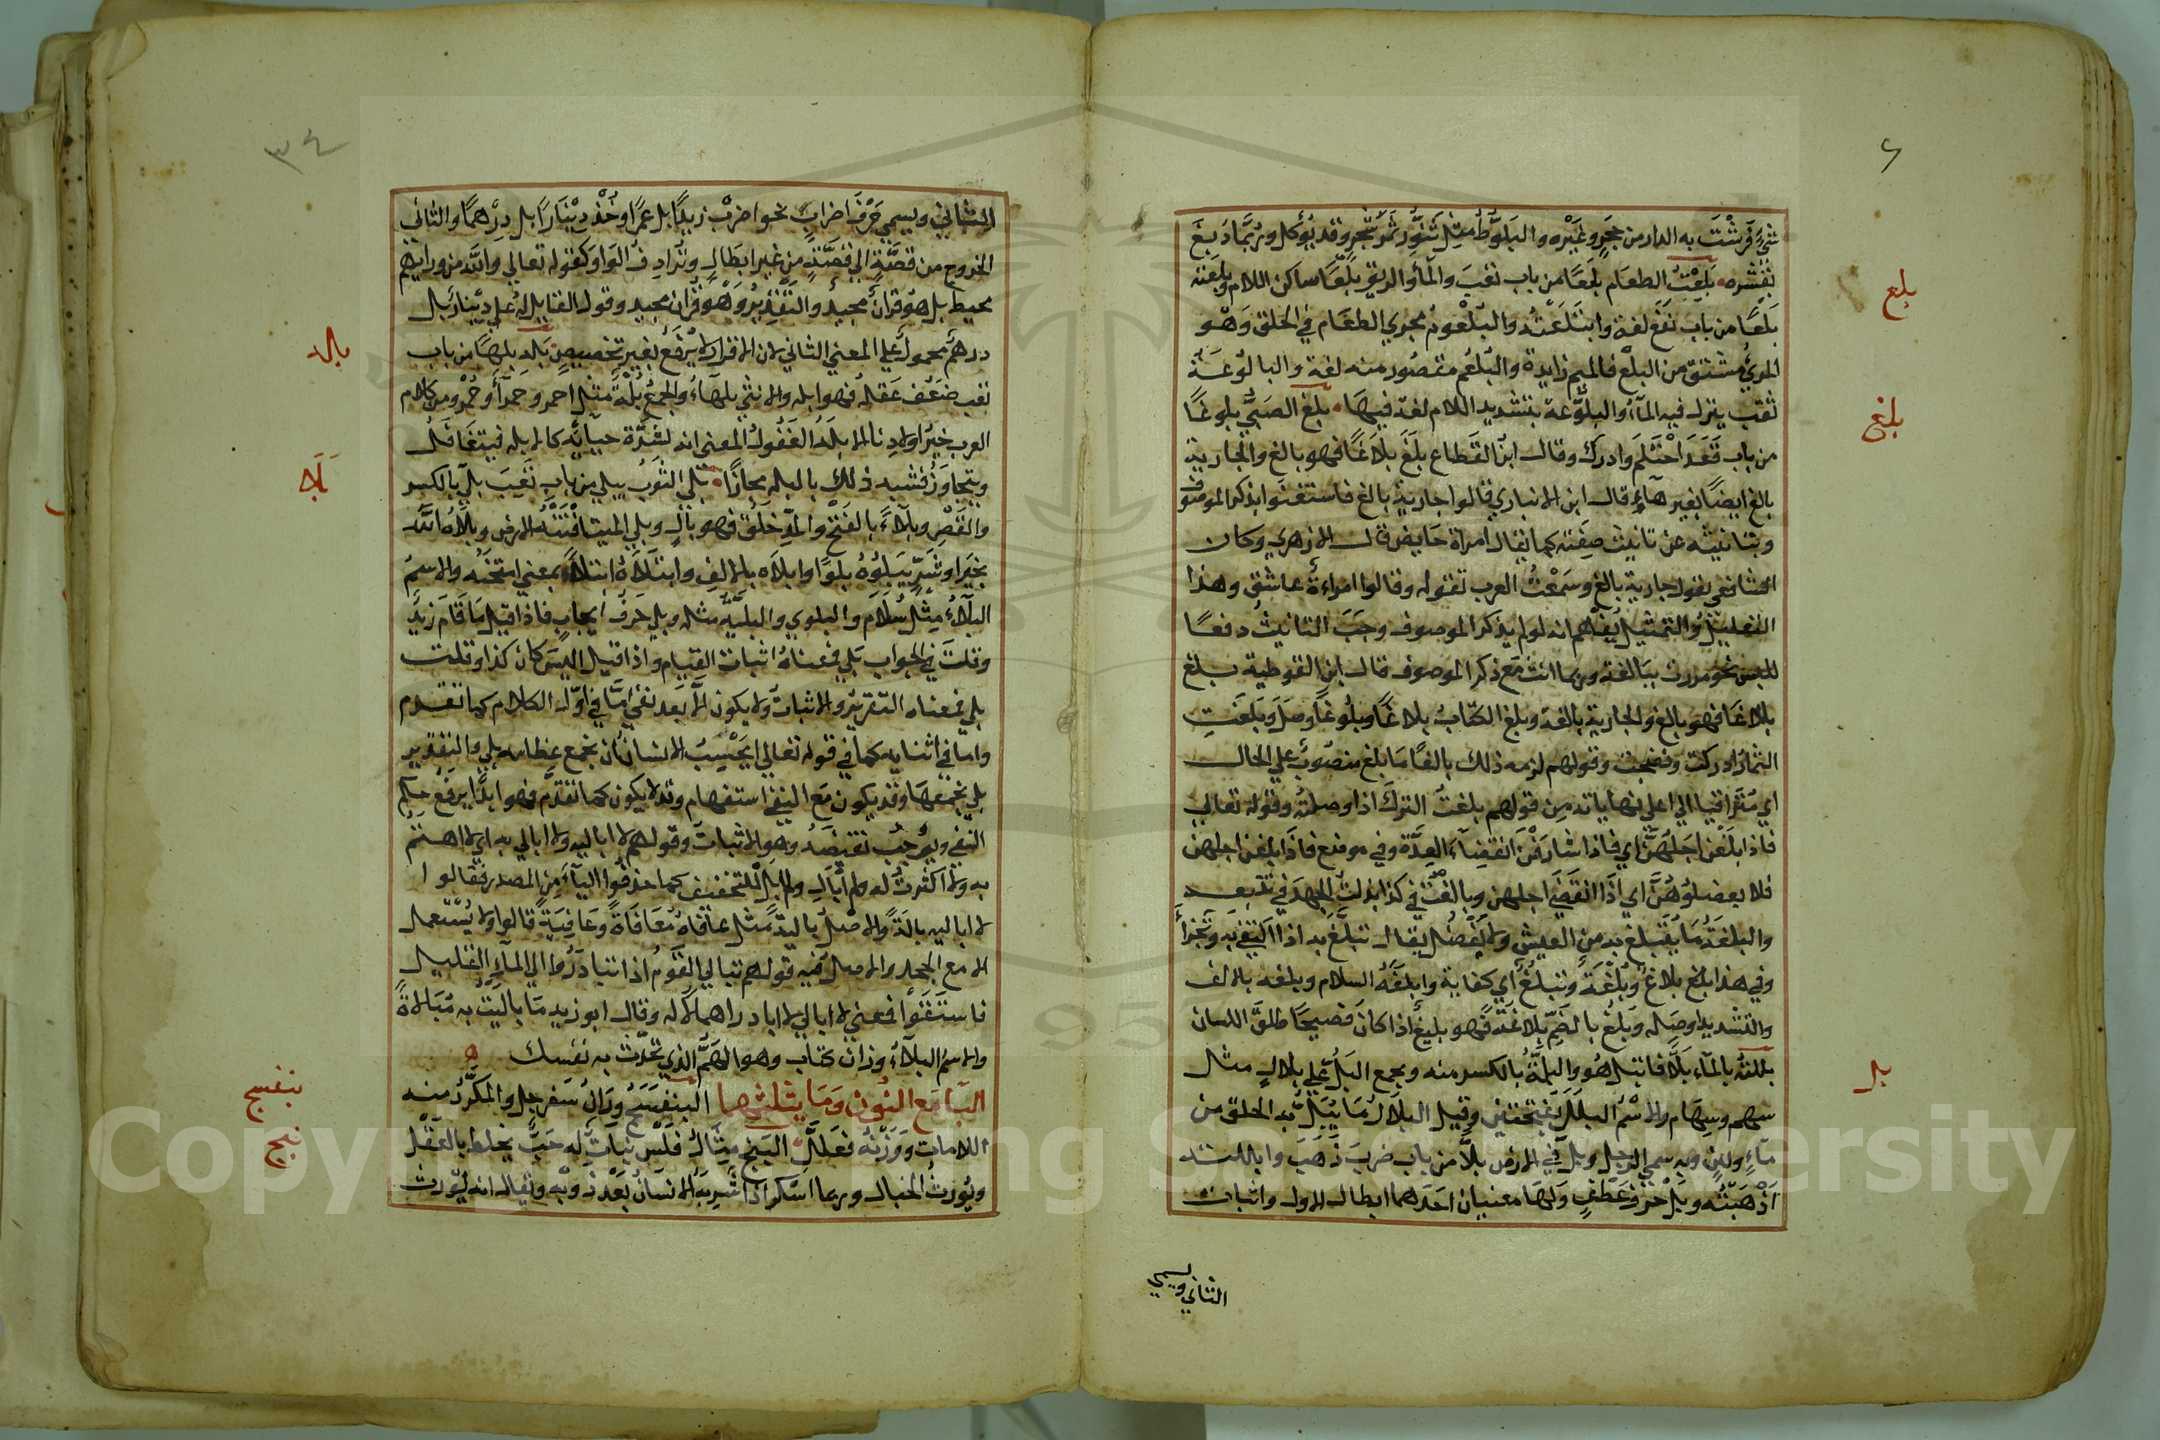 شئ فرشت به الدار من حجر وغيره والبلوط مثل تنور ثمر شجر وقد يؤكل وربما دبغ
بقشره بلعت الطعام بلعا من باب تعب والمأ والريق بلعا ساكن اللام وبلعته
بلعا من باب نفع لغة وابتلعته والبلعوم مجري الطعام في الحلق وهو
المرئ مشتق من البلع فالميم زايدة والبلعم مقصور منه لغة والبالوعة
ثقب ينزل فيه المآء والبلوعة بتشديد اللام لغة فيها بلغ الصبي بلوغا
من باب قعد احتلم وادرك وقال ابن القطاع بلغ بلاغا فهو بالغ والجارية
بالغ ايضا بغير هآء قال ابن الانباري قالوا جارية بالغ فاستغنوا بذكر الموصوف
وبتانيثه عن تانيث صفته كما يقال امراة حايض قال الازهري وكان
الشافعي يقول جارية بالغ وسمعت العرب تقوله وقالوا امراءة عاشق وهذا
التعليل والتمثيل يفهم انه لو لم يذكر الموصوف وجب التانيث دفعا
للبس نحو مررت ببالغة وربما انث مع ذكر الموصوف قال ابن القوطية بلغ
بلاغا فهو بالغ والجارية بالغة وبلغ الكتاب بلاغا وبلوغا وصل وبلغت
الثمار ادركت ونضجت وقولهم لزمه ذلك بالغا ما بلغ منصوب علي الحال
اي مترقيا الي اعلي نهاياته من قولهم بلغت المنزل اذا وصلته وقوله تعالي
فاذا بلغن اجلهن اي فاذا شارفن انقضآء العدة وفي موضع فاذا بلغن اجلهن
فلا يعضلوهن اي اذا انقضي اجلهن وبالغت في كذا بذلت الجهد في تتبعه
والبلغة ما يتبلغ به من العيش ولا يفضل يقال تبلغ به اذا اكتفي به وتجزأ
وفي هذا بلاغ وبلغة وتبلغ اي كفاية وابلغه السلام وبلغه بالالف
والتشديد اوصله وبلغ بالضم بلاغة فهو بليغ اذا كان فصيحا طلق اللسان
بللته بالمآء بلا فابتل هو والبلة بالكسر منه ويجمع البل علي بلال مثل
سهم وسهام والاسم البلل بفتحتين وقيل البلال ما يبل به الحلق من
مآء ولبن وبه سمي الرجل وبل في الارض بلا من باب ضرب ذهب وابللته
اذهبته وبل حرف عطف ولها معنيان احدهما ابطال الاول واثبات
الثاني ويسمي
بلع
بلغ
بل
٦
٣٤
الثاني ويسمي حرف اضراب نحو اضرب زيدا بل عمرا وخذ دينارا بل درهما والثاني
الخروج من قصة الي قصة من غير ابطال وترادف الواو كقوله تعالي والله من ورايهم
محيط بل هو قران مجيد والتقدير وهو قران مجيد وقول القايل له علي دينار بل
درهم محمول علي المعني الثاني لان الاقرار لا يرفع بغير تخصيص بله بلها من باب
تعب ضعف عقله فهو ابله والانثي بلهآء والجمع بله مثل احمر وحمرآء وحمر ومن كلام
العرب خير اولادنا الابله الغفول المعني انه لشدة حيايه كالابله فيتغافل
ويتجاوز فشبه ذلك بالبله مجازا بلي الثوب يبلي من باب تعب بلي بالكسر
والقصر وبلآء بالفتح والمد خلق فهو بال وبلي الميت افنته الارض وبلاه الله
بخير او شر يبلوه بلوا وابلاه بالالف وابتلاه ابتلآء بمعني امتحنه والاسم
البلآء مثل سلام والبلوي والبلية مثله وبلي حرف ايجاب فاذا قيل ما قام زيد
وقلت في الجواب بلي فمعناه اثبات القيام واذا قيل اليس كان كذا وقلت
بلي فمعناه التقرير والاثبات ولا يكون الا بعد نفي اما في اول الكلام كما تقدم
واما في اثنايه كما في قوله تعالي ايحسب الانسان ان لن نجمع عظامه بلي والتقدير
بلي نجمعها وقد يكون مع النفي استفهام وقد لا يكون كما تقدم فهو ابدا يرفع حكم
النفي ويوجب نقيضه وهو الاثبات وقولهم لا اباليه ولا ابالي به اي لا اهتم
به ولا اكترث له ولم ابال ولم ابل للتخفيف كما حذفوا اليآء من المصدر فقالوا
لا اباليه بالة والاصل بالية مثل عافاه معافاة وعافية قالوا ولا يستعمل
الا مع الجحد والاصل فيه قولهم تبالي القوم اذا تبادروا الي المآء القليل
فاستقوا فمعني لا ابالي لا ابادر اهمالا له وقال ابو زيد ما باليت به مبالاة
والاسم البلآء وزان كتاب وهو الهم الذي تحدث به نفسك
البآ مع النون وما يثلثهما البنفسج وزان سفرجل والمكرر منه
اللامات ووزنه فعللل البنج مثال فلس نبات له حب يخلط بالعقل
ويورث الخبال وربما اسكر اذا شربه الانسان بعد ذوبه ويقال انه يورث
بله
بلي
بنفسج
بنج
Copyright © King Saud University